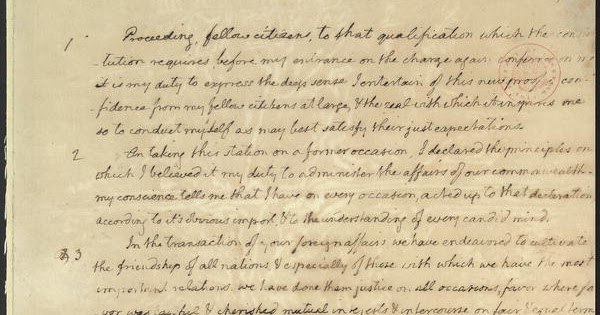 1. Proceeding, fellow citizens, to that qualification which the consti-
-tution requires before my entrance on the charge again conferred on me
it is my duty to express the deep sense I entertain of this new proof of con-
-fidence from my fellow citizens at large, & the zeal with which it inspires me
so to conduct myself as may best satisfy their just expectations.
2 On taking this station on a former occasion, I declared the principles on
which I believed it my duty to administer the affairs of our commonwealth.
my conscience tells me that I have on every occasion, acted up to that declaration
according to it's obvious import, & to the understanding of every candid mind.
3 In the transaction of your foreign affairs we have endeavored to cultivate
the friendship of all nations, & especially of those with which we have the most
important relations. we have done them justice on all occasions, favor where fa-
vor was lawful & cherished mutual interests & intercourse on fair & equal terms